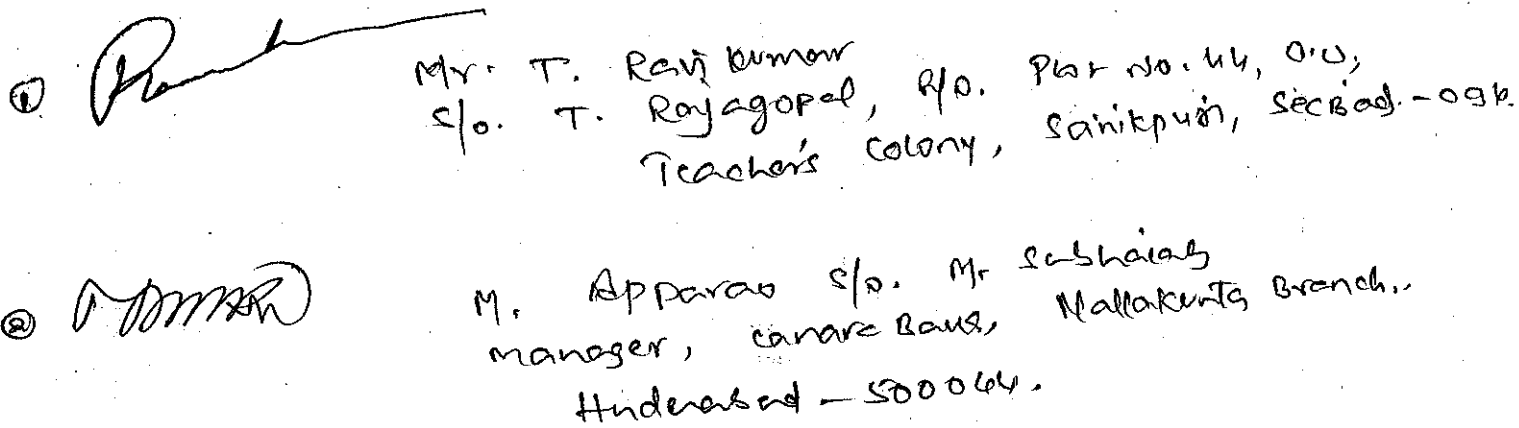 ① Mr. T. Ravi Kumar
S/o. T. Rajagopal, R/o. Plot No. 44, O.U,
Teacher's Colony, Sainikpuri, Sec'Bad.
② M. Apparao S/o. Mr Subbaiah
Manager, Canara Bank, Nallakunta Branch,
Hyderabad - 500044.